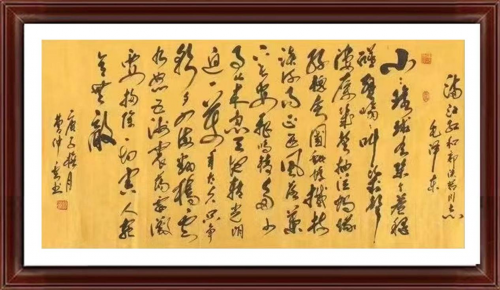 满江红和郭沫若同志
毛泽东
小小寰球有几个苍蝇
碰壁嗡嗡叫几声
凄厉几声抽泣蚂蚁缘
槐夸大国蚍蜉撼树
谈何易正西风落叶
下长安飞鸣镝多少
事从来急天地转光阴
迫一万年太久只争
朝夕四海翻腾云
水怒五洲震荡风雷激
要扫除一切害人虫
全无敌